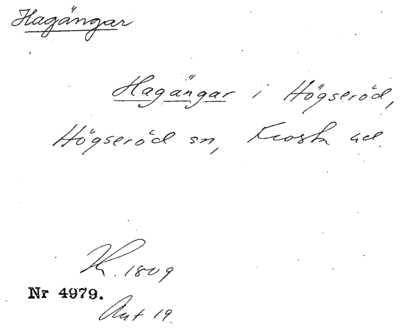 Hagängar
Hagängar i Högseröd,
Högseröd sn, Frosta hd.
K. 1809
Nr 4979.
Akt 19.